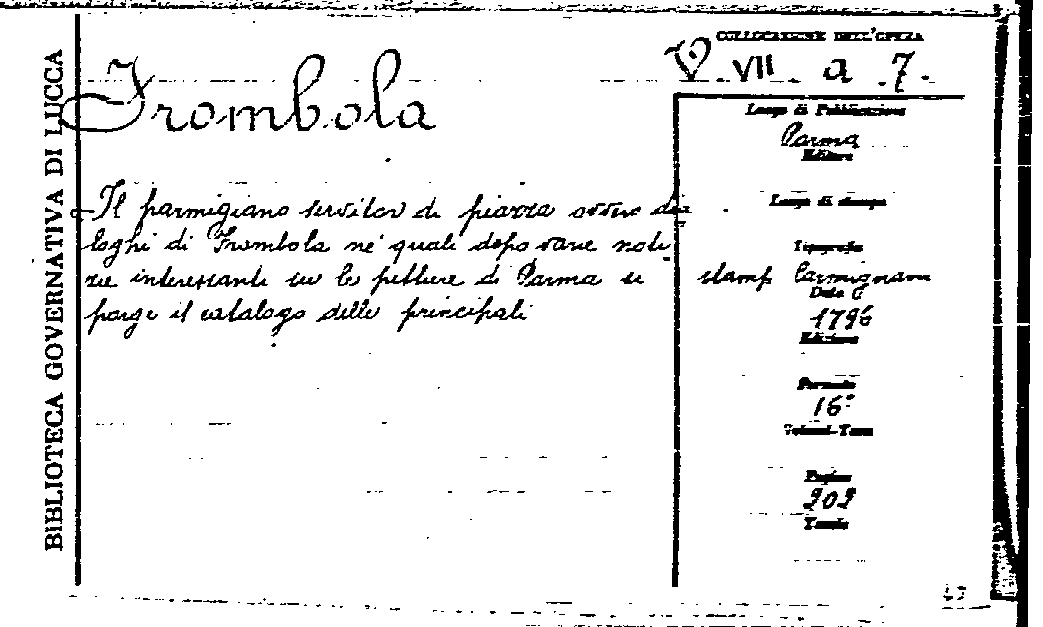 BIBLIOTECA GOVERNATIVA DI LUCCA
COLLOCAZIONE DELL'OPERA
VII a 7.
Trombola
Il parmigiano servitor di piazza ovvero dia
loghi di Frombola ne' quali dopo varie noti
zie interessanti su le pitture di Parma si
porge il catalogo delle principali
Luogo di Pubblicazione
Parma
Editore
Luogo di stampa
Tipografia
stamp Carmignani
Data
1796
Edizione
Formato
16°
Volumi-Tomi
Pagine
202
Tavole